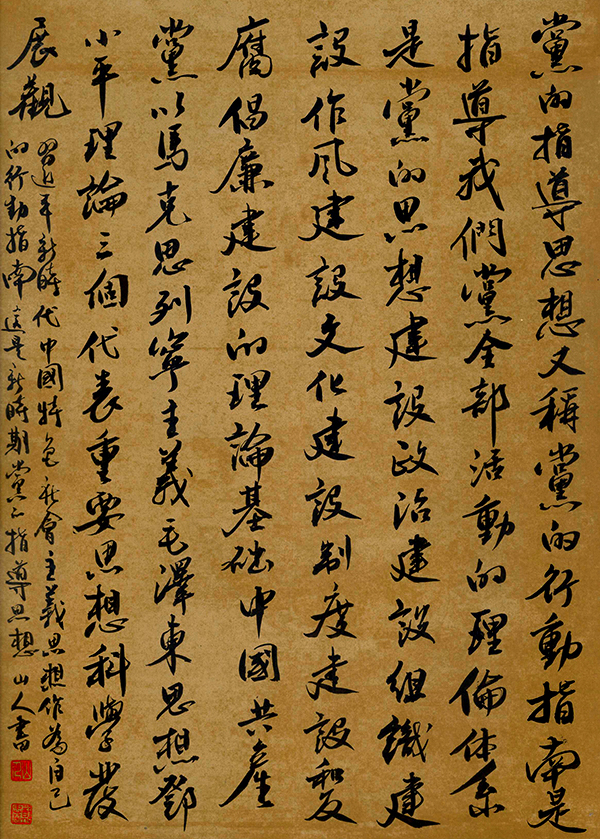 黨的指導思想又稱黨的行動指南是
指導我們黨全部活動的理倫体系
是黨的思想建設政治建設組織建
設作风建設文化建設制度建設和反
腐倡廉建設的理論基础中國共産
黨以馬克思列寧主義毛澤東思想鄧
小平理論三個代表重要思想科學發
展觀
習近平新時代中國特色社會主義思想作為自己
的行動指南這是新時期黨的指導思想 山人書